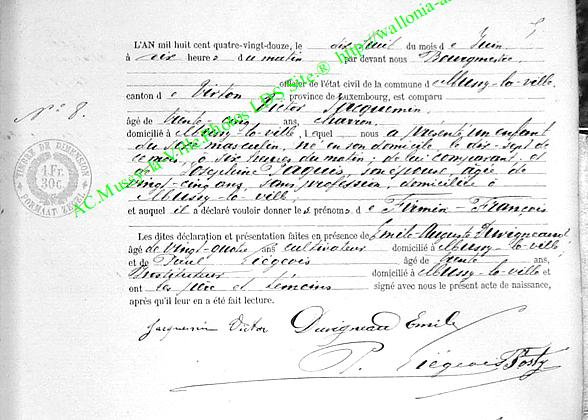 L'AN mil huit cent quatre-vingt-douze, le dix huit du mois de Juin
à dix heures du matin par devant nous Bourgmestre
officier de l'état civil de la commune de Mussy-la-ville
canton de Virton province de Luxembourg, est comparu
Victor Jacquemin
âgé de trente cinq ans, charron
domicilié à Mussy-la-ville, lequel nous a présenté un enfant
du sexe masculin, né en son domicile, le dix-sept de
ce mois, à six heures du matin; de lui comparant, et
Joséphine Jaquis, son épouse, agée de
vingt-cinq ans, sans profession, domiciliée à
Mussy-la-ville,
et auquel il a déclaré vouloir donner les prénoms de Firmin-François
Les dites déclaration et présentation faites en présence de Emile Auguste Duvigneaud
âgé de vingt-quatre ans cultivateur domicilié à Mussy-la-ville
et de Paul Liégeois âgé de trente ans,
Instituteur domicilié à Mussy-la-ville et
ont les père et témoins signé avec nous le présent acte de naissance,
après qu'il leur en a été fait lecture.
Jacquemin Victor Duvigneaud Emile
P. Liégeois Posty
N° 8.
TIMBRE DE DIMENSION
1 Fr.
30C
FORMAAT ZEGEL
AC.Musson V.Ville Photos LDS Site.® http://wallonia-a